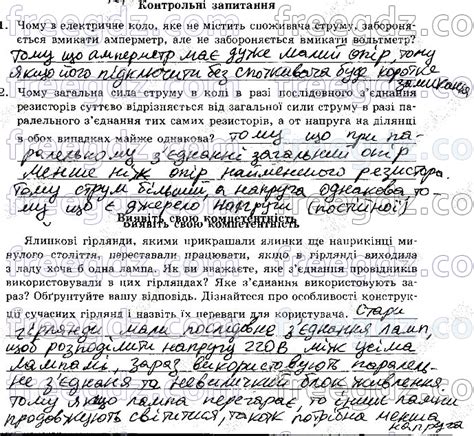 Контрольні запитання
1. Чому в електричне коло, яке не містить споживача струму, забороня-
ється вмикати амперметр, але не забороняється вмикати вольтметр?
Тому що амперметр має дуже малий опір, тому
якщо його підключити без споживача буде коротке
замикання
2. Чому загальна сила струму в колі в разі послідовного з'єднання
резисторів суттєво відрізняється від загальної сили струму в разі па-
ралельного з'єднання тих самих резисторів, а от напруга на ділянці
в обох випадках майже однакова? Тому що при па-
ралельному з'єднанні загальний опір
менше ніж опір найменшого резистора.
Тому струм більший а напруга однакова то-
му що є джерело напруги (постійної)
Виявіть свою компетентність
Виявіть свою компетентність
Ялинкові гірлянди, якими прикрашали ялинки ще наприкінці ми-
нулого століття, переставали працювати, якщо в гірлянді виходила
з ладу хоча б одна лампа. Як ви вважаєте, яке з'єднання провідників
використовували в цих гірляндах? Яке з'єднання використовують за-
раз? Обґрунтуйте вашу відповідь. Дізнайтеся про особливості конструк-
ції сучасних гірлянд і назвіть їх переваги для користувача. Старі
гірлянди мали послідовне з'єднання ламп,
щоб розподілити напругу 220В між усіма
лампами, зараз використовують паралель-
не з'єднаня та невеличкий блок живлення
тому якщо лампа перегарає, то інші лампи
продовжують світитися, також потрібна менша
напруга